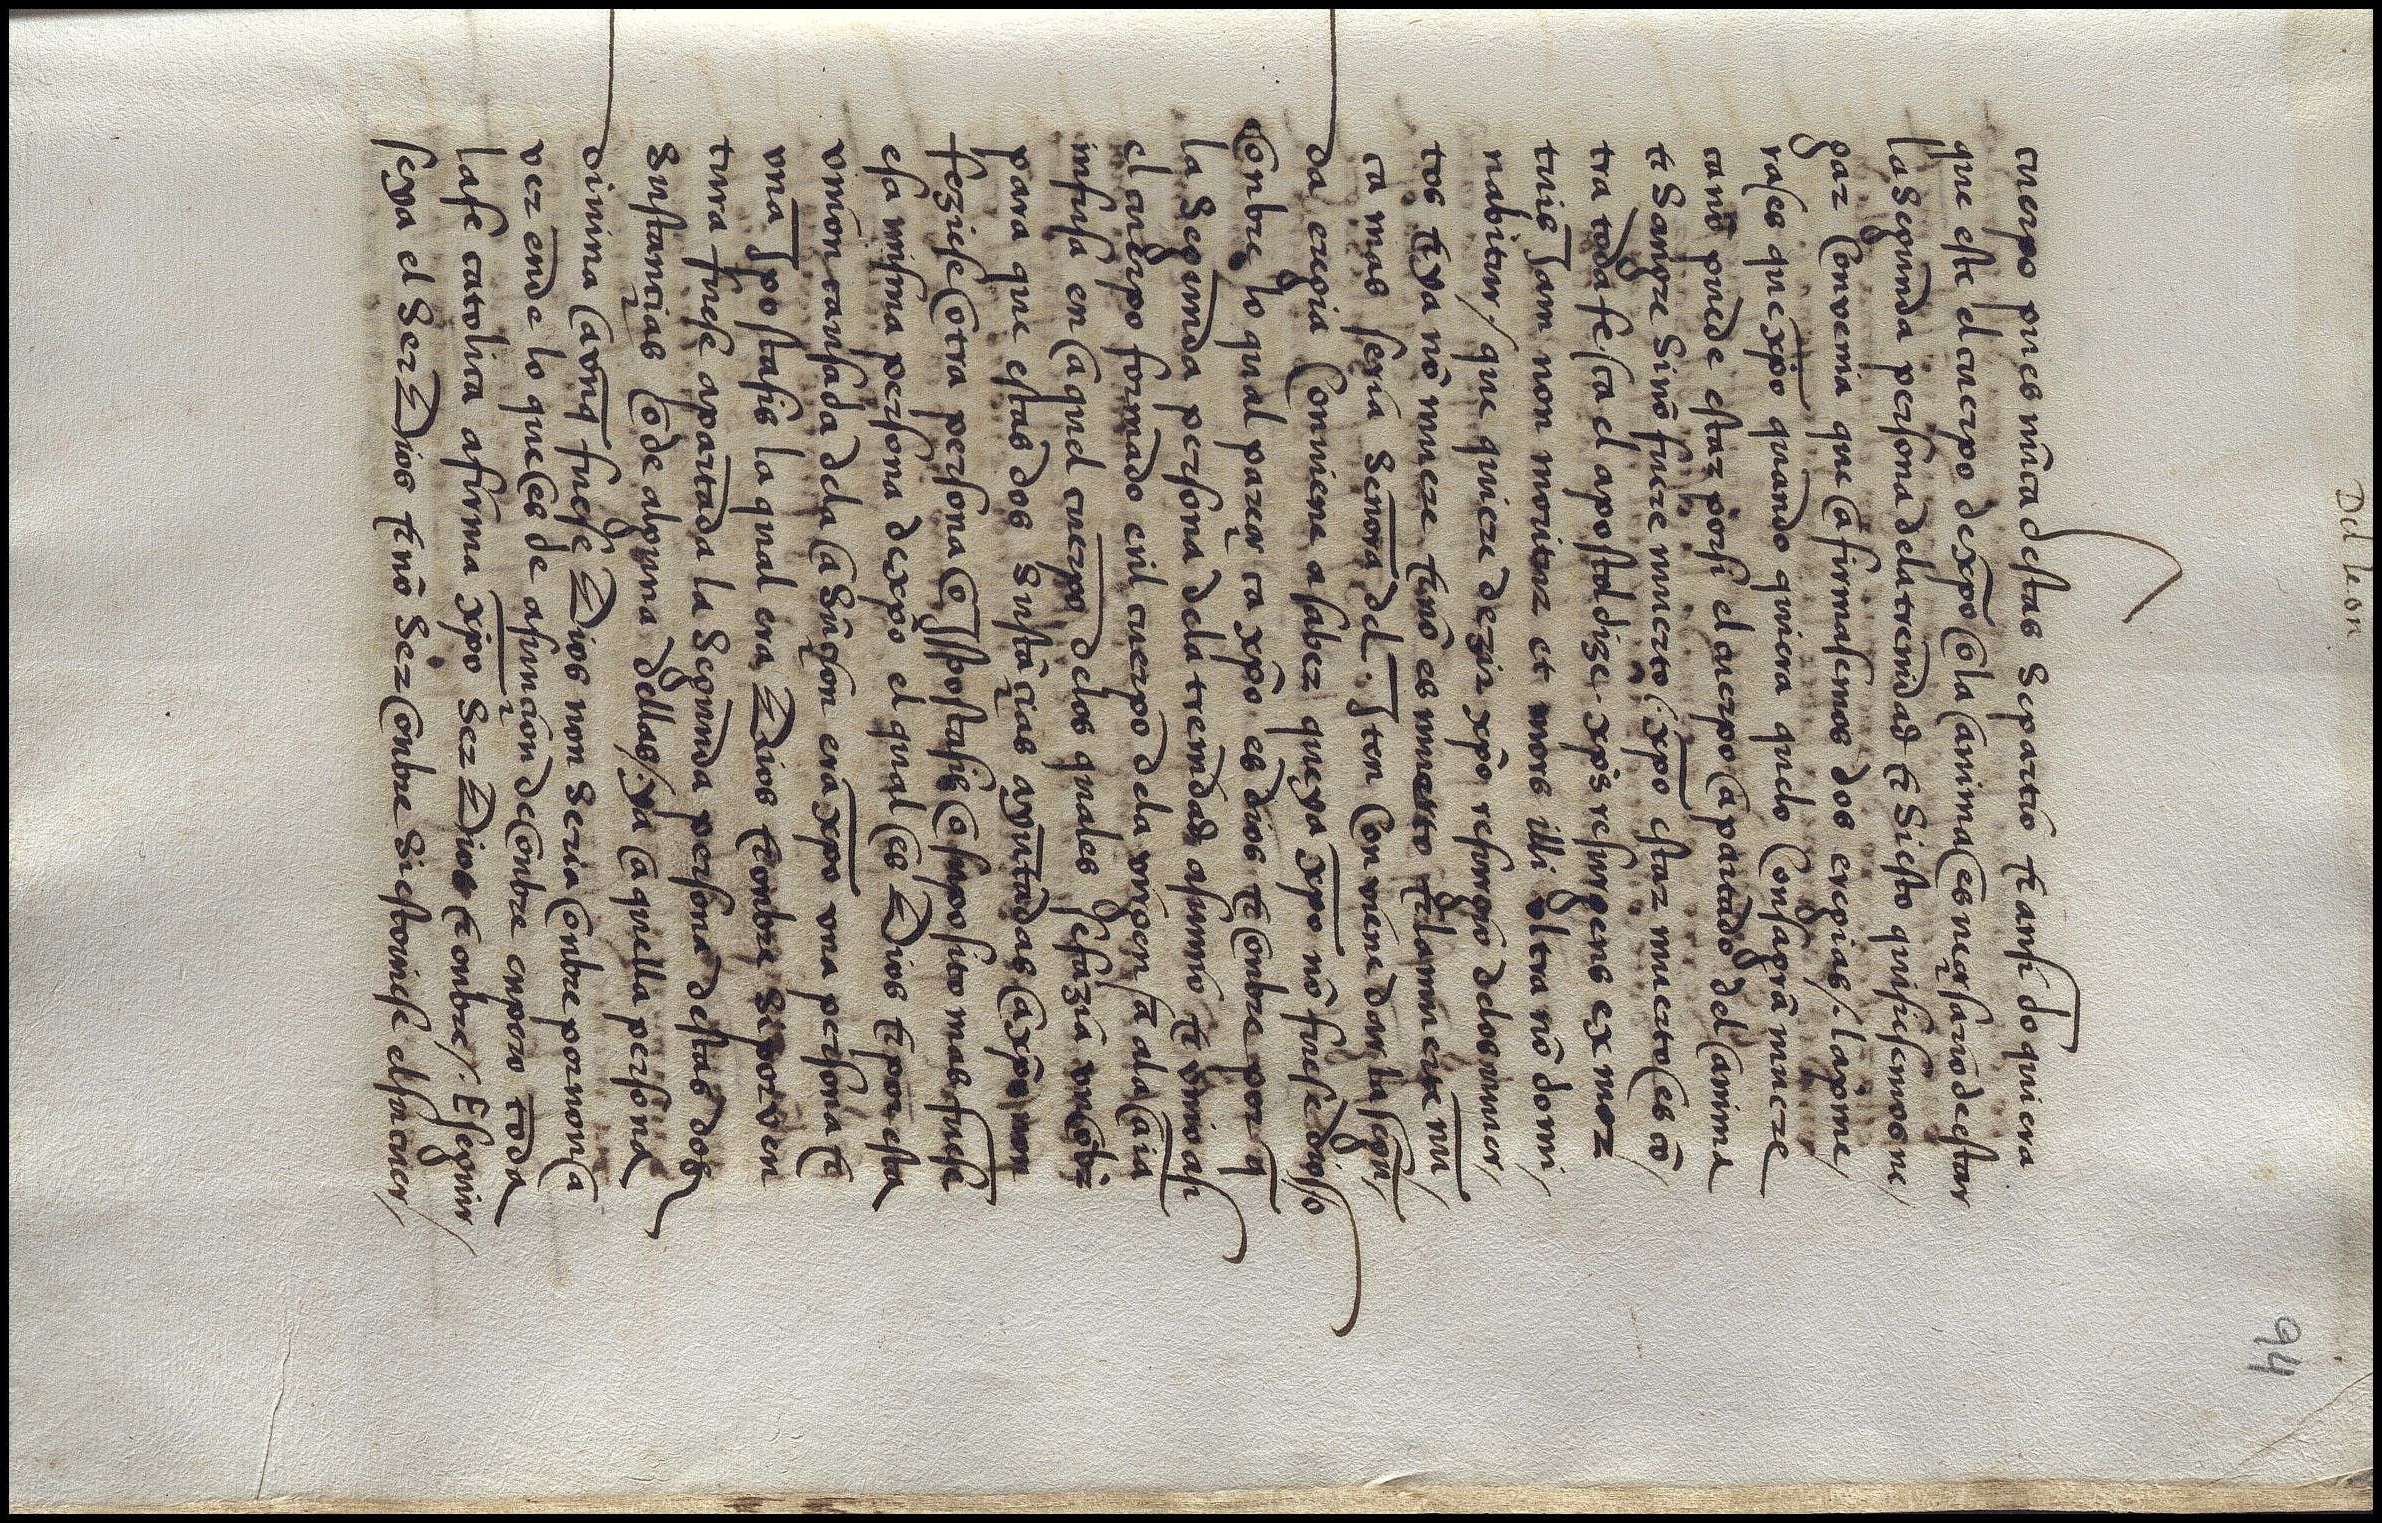 Del leon
94
cuerpo pues nũca destas se partio τ ansi do quiera
que este el cuerpo de xp̃o cõ la anima es neçesario de estar
la segunda persona dela trenidad τ si esto quisiesemos ne
gar convernia que afirmasemos dos eregias /. la prime
ra es que xp̃o quando quiera que lo consagrã muere
ca nõ puede estar por si el cuerpo apartado del anima
τ sangre sinõ fuere muerto /. xp̃o estar muerto es cõ
tra toda fe. ca el apostol dize. xp̃s resurgens ex mor
tuis Jam non moritur et mors illi ultra nõ domi
nabitur /. que quiere dezir xp̃o resurgio delos muer
tos τ ya nõ muere τ nõ es muerto τ la muerte nũ
ca mas sera señora del. Jten convãne dar la segũ
da eregia conviene a saber que ya xp̃o nõ fuese dios o
onbre lo qual pareçer ca xp̃o es dios τ onbre por q̃
la segunda persona dela trenidad asumio τ vnio asi
el cuerpo formado enl cuerpo dela virgen sã ala aĩa
infusa en aquel cuerpo delos quales se fazia vn onbr
para que estas dos sustãçias ayuntadas a xp̃o non
feziese otra persona o ypostasis o suposito mas fuese
esa misma persona de xp̃o el qual es dios τ por esta
vnion causada dela asũçion era xp̃o vna persona τ
vna Jpostasis la qual era dios τ onbre si por ven
tura fuese apartada la segunda persona destas dos
sustançias o de alguna dellas /. ya aquella persona
diuina avnq̃ fuese dios non seria onbre por non a
ver ende lo que es de asunçion de onbre en otro toda
la fe catolica afirma xp̃o ser dios τ onbre /. E seguir
se ya el ser dios τ nõ ser onbre si estoviese el sacner